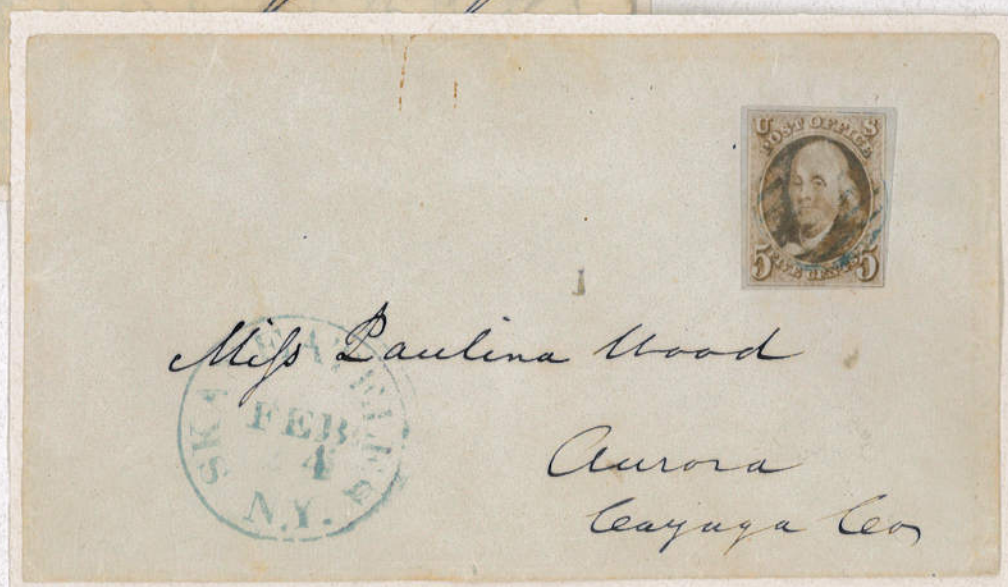 U S
POST OFFICE
5 FIVE CENTS 5
Miss Paulina Wood
SKANEATELES
FEB
4
N.Y.
Aurora
Cayuga Co